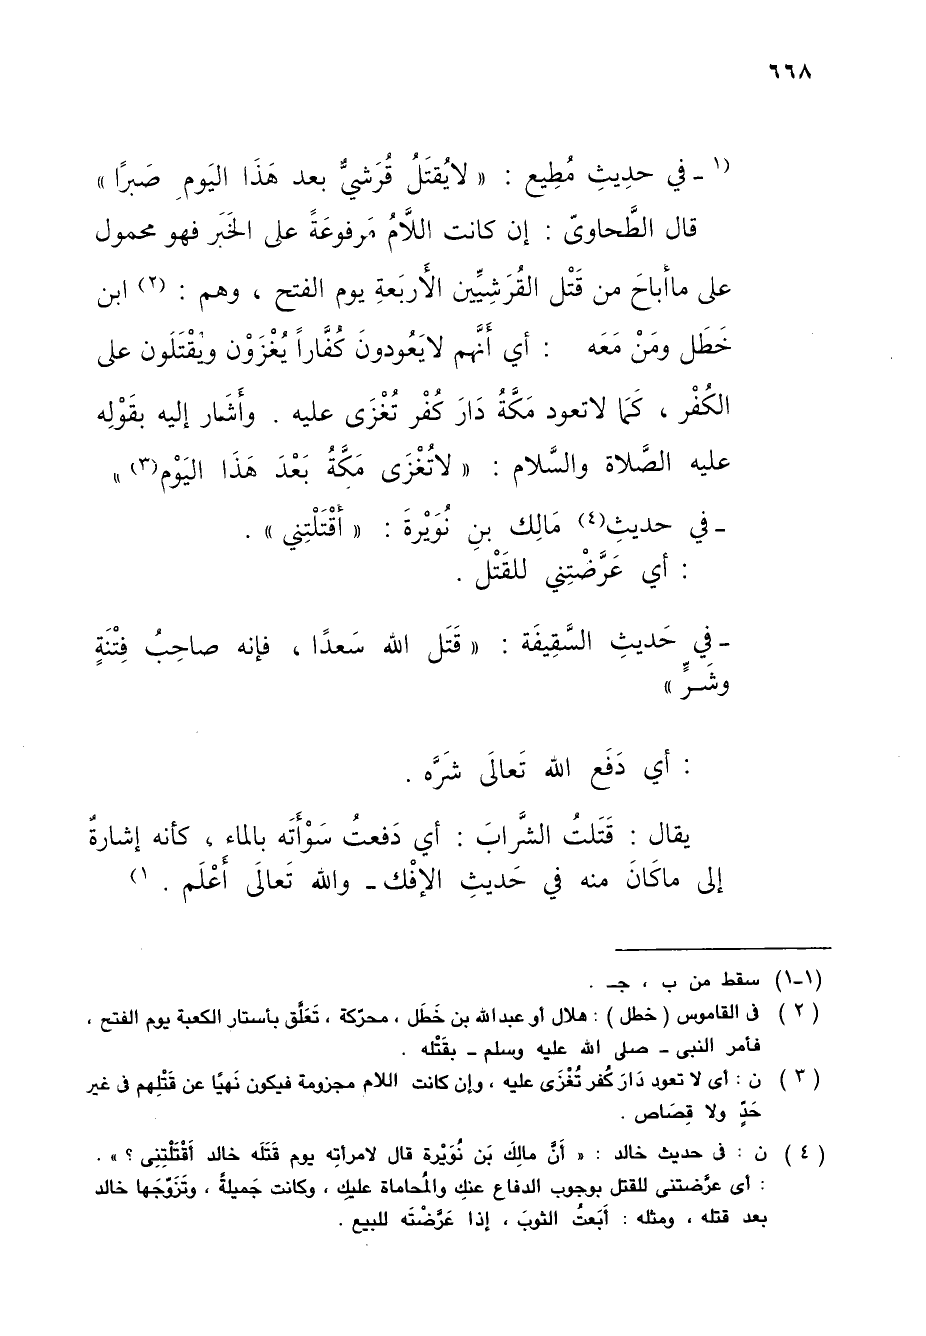 ٦٦٨
(١ ـ في حدِيثِ مُطِيع : « لايُقتَلُ قُرَشيٌّ بعد هَذَا اليَوم ِ صَبرًا »
قال الطَّحاوىّ : إن كانت اللاَّمُ مَرفوعَةً على الخَبَر فهو محمول
على ماأباحَ من قَتْل القُرَشيِّين الأَربعةِ يوم الفتح ، وهم : (٢) ابن
خَطَل ومَنْ مَعَه : أي أَنَّهم لايَعُودونَ كُفَّاراً يُغْزَوْن ويُقْتَلَون على
الكُفْر ، كَمَا لاتعود مَكَّةُ دَارَ كُفْر تُغْزَى عليه . وأَشَار إليه بقَوْلِه
عليه الصَّلاة والسَّلام : « لاتُغْزَى مَكَّةُ بَعْدَ هَذَا اليَوْم(٣) »
ـ في حديثِ(٤) مَالِك بنِ نُوَيْرةَ : « أَقْتَلْتِني » .
: أي عَرَّضْتِنِي للقَتْل .
ـ في حَديثِ السَّقِيفَة : « قَتَل الله سَعدًا ، فإنه صاحِبُ فِتْنَةٍ
وشَـرٍّ »
: أي دَفَع الله تَعالَى شَرَّه .
يقال : قَتَلتُ الشَّرابَ : أي دَفعتُ سَوْأَتَه بالماء ، كأنه إشارةٌ
إلى ماكَانَ منه في حَديثِ الإفْك ـ والله تَعالَى أَعْلَم . ١)
(١ـ١) سقط من ب ، جـ .
( ٢ ) فى القاموس ( خطل ) : هلال أو عبدالله بن خَطَل ، محرّكة ، تَعَلَّق بأستار الكعبة يوم الفتح ،
فأمر النبى ـ صلى الله عليه وسلم ـ بقَتْله .
( ٣ ) ن : أى لا تعود دَارَ كُفر تُغْزَى عليه ، وإن كانت اللام مجزومة فيكون نَهيًا عن قَتْلِهم فى غير
حَدٍّ ولا قِصَاص .
( ٤ ) ن : فى حديث خالد : « أَنَّ مالِكَ بَن نُوَيْرة قال لامرأتِه يوم قَتَلَه خالد أَقْتَلْتِنِى ؟ » .
: أى عرَّضتنى للقتل بوجوب الدفاع عنكِ والمُحاماة عليكِ ، وكانت جَميلةً ، وتَزَوَّجَها خالد
بعد قتله ، ومثله : أَبَعتُ الثوبَ ، إذا عَرَّضْتَه للبيع .